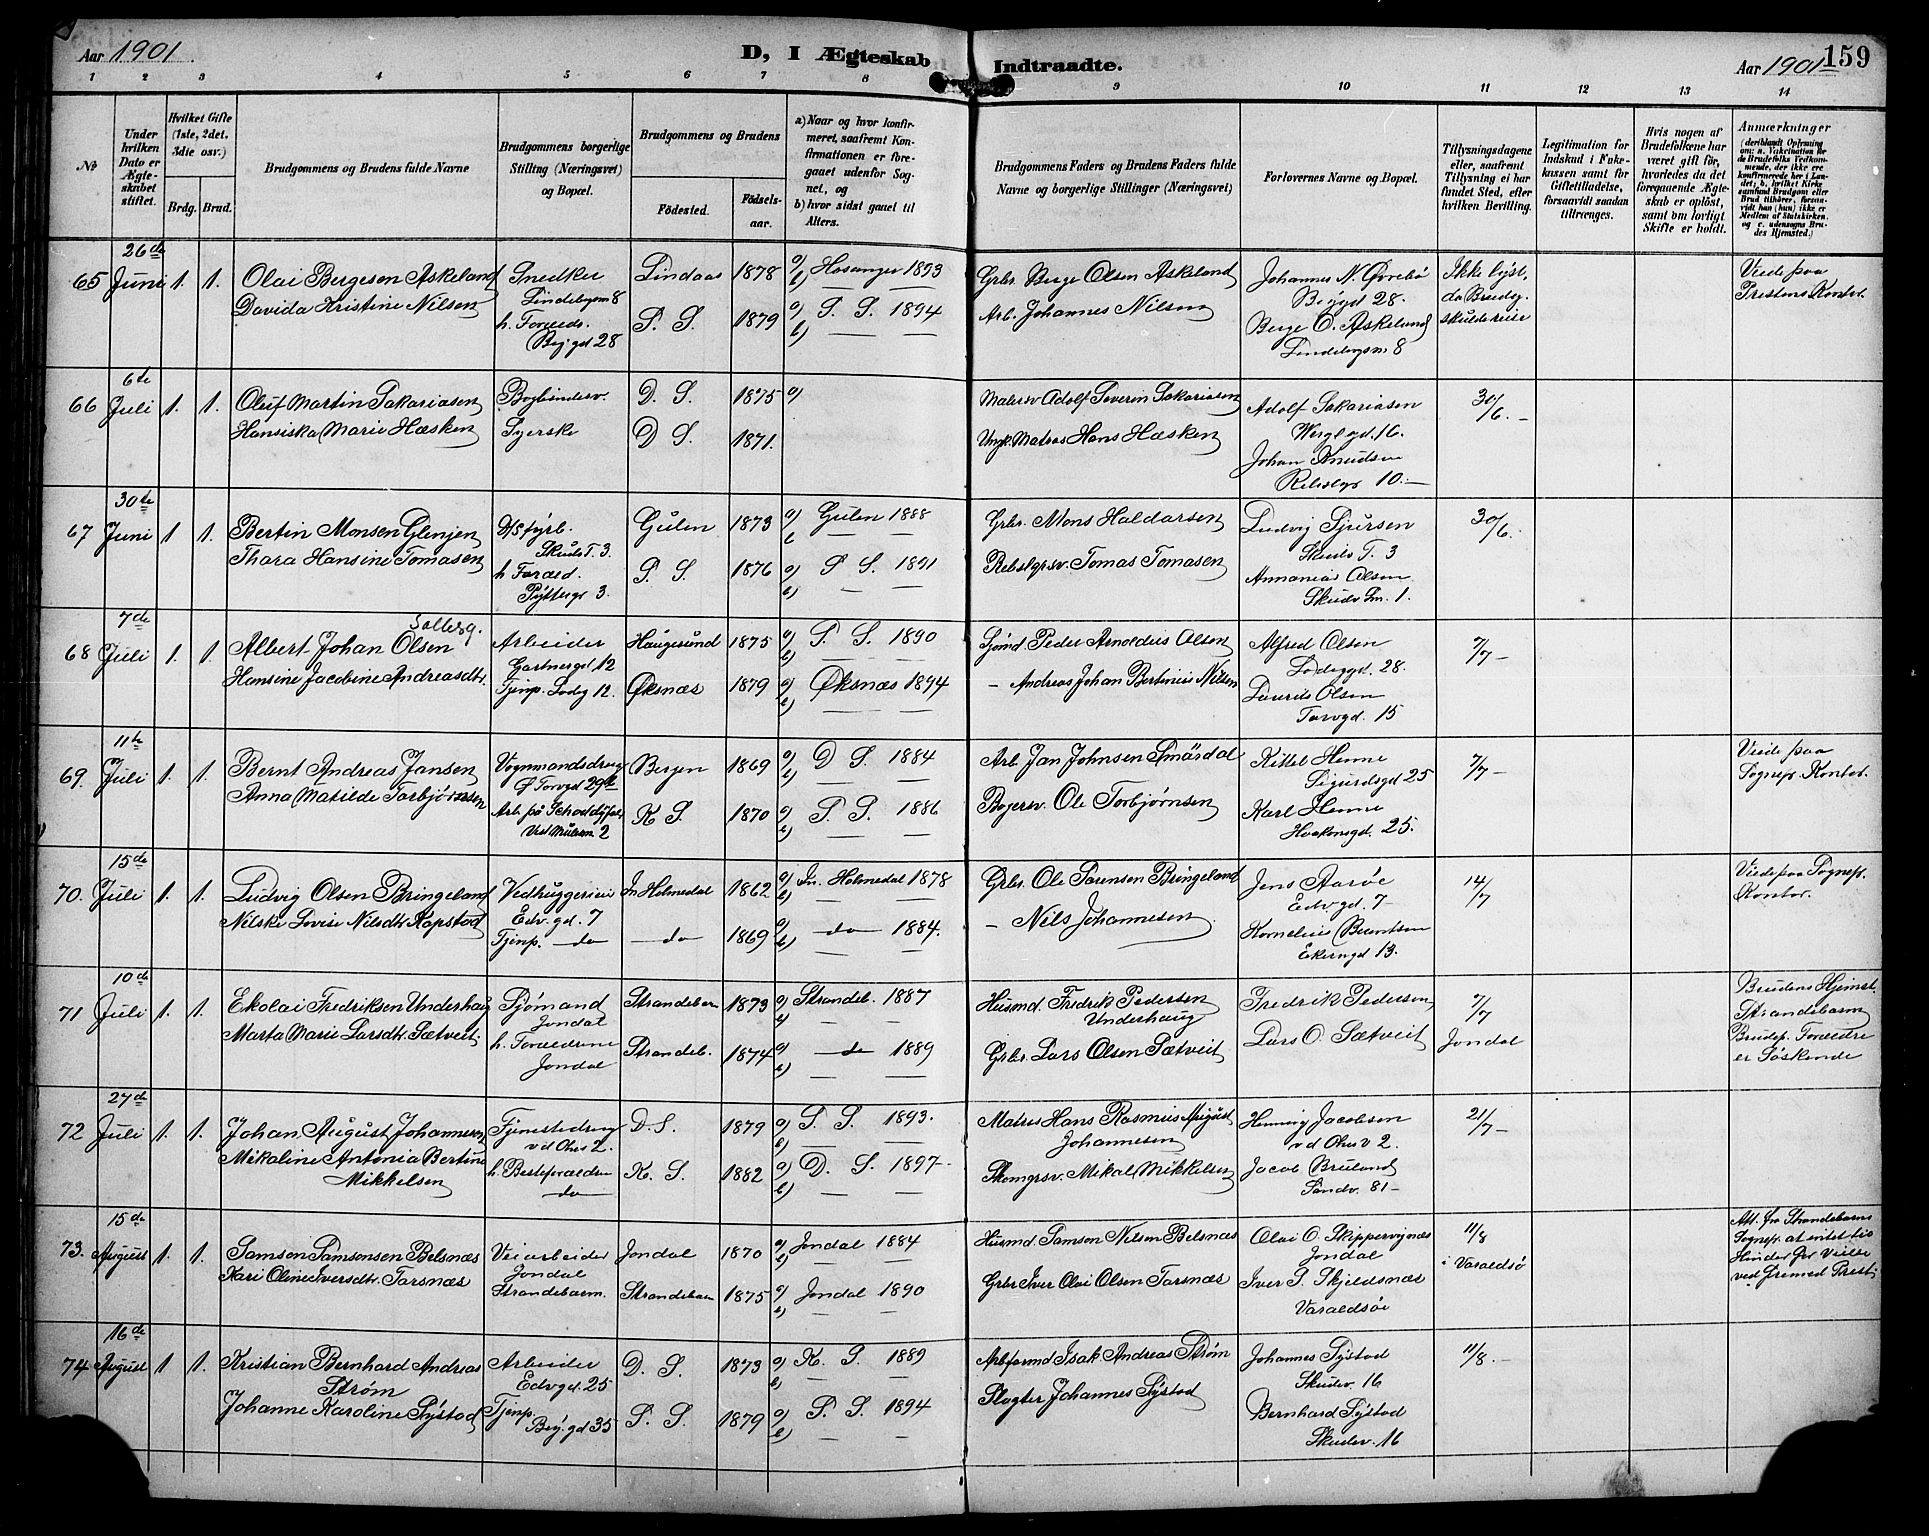 Aar 1901. D, I Ægteskab Indtraadte. Aar 1901 159
1 2 3 4 5 6 7 8 9 10 11 12 13 14
No
Under hvilken Dato er Ægteskabet stiftet.
Hvilket Gifte (1ste, 2det, 3die osv.)
Brdg. Brud.
Brudgommens og Brudens fulde Navne
Brudgommens borgerlige Stilling (Næringsvei) og Bopæl.
Brudgommens og Brudens
Fødested. Fødsels-aar.
a) Naar og hvor konfirmeret, saafremt Konfirmationen er foregaaet udenfor Sognet, og
b) hvor sidst gaaet til Alters.
Brudgommens Faders og Brudens Faders fulde Navne og borgerlige Stillinger (Næringsvei)
Forlovernes Navne og Bopæl.
Tillysningsdagene eller, saafremt Tillysning ei har fundet Sted, efter hvilken Bevilling.
Legitimation for Indskud i Enkekassen samt for Giftetilladelse, forsaavidt saadan tiltrænges.
Hvis nogen af Brudefolkene har været gift før, hvorledes da det foregaaende Ægteskab er opløst, samt om lovligt Skifte er holdt.
Anmærkninger
65 26de Juni 1. 1. Olai Bergesen Askeland Snedker Lindebgsm 8 Lindaas 1878 a) Hosanger 1893 b) — — Grbr. Berge Olsen Askeland Johannes N. Øvrebø Bøygd 28. Ikke lyst, da Brudg. skulde reise Viede paa Prestens Kontor.
Davida Kristine Nilsen h. Foræds. Bøj.gd 28 S. S. 1879 a) S. S. 1894 b) — — Arb. Johannes Nilsen Berge O. Askeland Lindebgsm 8
66 6te Juli 1. 1. Oluf Martin Sakariasen Bogbinderv. D. S. 1875 a) Malersv Adolf Severin Sakariasen Adolf Sakariasen 16. 30/6. –
Hansiska Marie Hæsken Syerske D S. 1871. Ungk. Matros Hans Hæsken Johan Knudsen 10.–
67 30te Juni 1 1. Bertin Monsen Glenjen Skuds T. 3 Gulen 1873 a) Gulen 1888 b — — Grbr. Mons Haldorsen Ludvig Sjursen Skuds T. 3 30/6.
Thara Hansine Tomasen h Foræld. Pyttergr 3. S. S. 1876 a) S S. 1891 b) — — Rebslgrsv. Tomas Tomasen Annanias Olsen Skudv Sm. 1.
68 7de Juli 1. 1. Albert Johan Olsen Solberg. Arbeider Gartnergd 12 Haugesund 1875 a) S. S. 1890 b) — — Sjømd Peder Arnoldus Olsen Alfred Olsen Lodegd. 28. 7/7 –
Hansine Jacobine Andreasdtr. Tjenp. Lodg 12. Øksnæs 1879 a) Øksnæs 1894 b) — — – Andreas Johan Bertinius Nilsen Laurits Olsen Torvgd. 15
69. 11te Juli 1. 1. Bernt Andreas Jansen Vognmandsdreng Ø Torvgd 29 Bergen 1869 a) D S. 1884 b) — — Arb. Jan Johnsen Smørdal Kittel Henne Sigurdsgd 25 7/7 – Viede paa Sognepr. Kontor.
Anna Matilde Torbjørnsen Arb. på Vid Mulesm 2 K S. 1870 a) S. S. 1886 b) — — Bøjersv. Ole Torbjørnsen Karl Henne Haakonsgd. 25.
70. 15de Juli 1. 1. Ludvig Olsen Bringeland Vedhuggeriei Edv. gd. 7 In. Holmedal 1862 a) In. Holmedal 1878 b) — — Grbr. Ole Sørensen Bringeland Jens Aarøe Edv. gd. 7 – 14/7 Viede paa Sognepr. Kontor.
Nilske Lovise Nilsdtr. Kapstad Tjenp. — do — do 1869 a) — do — 1884. b) — — – Nils Johannesen Kornelius Berentsen Ekerngd 13.
71 10de Juli 1. 1. Ekolai Fredriksen Underhaug Sjømand Jondal Strandebarm 1873 a) Strandeb. 1887 b) — — Husmd. Fredrik Pedersen Underhaug Fredrik Pedersen 7/7 Brudens Hjemst. Strandebarm
Marta Marie Larsdtr. Sætveit. h. Forældrene Jondal Strandeb. 1874 a) — do 1889 b) — — Grbr. Lars Olsen Sætveit Lars O. Sætveit Jondal Brudep. Forældre er Søskende
72 27de Juli 1. 1. Johan August Johannesen Tjenestedreng vd Ohrs 2. D. S. 1879 a) S. S. 1893. b) — — Matros Hans Rasmus August Johannesen Henning Jacobsen vd Ohrs v 2. 21/7 –
Mikaline Antonia Bertine Mikkelsen h. Besteforældre — do — K. S. 1882 a) D. S. 1897– b) — — Skomgrsv. Mikal Mikkelsen Jacob Bruland Sandv. 81 –
73. 15de August 1. 1. Samson Samsonsen Belsnæs Veiarbeider Jondal Jondal 1870 a) Jondal 1884 b) — — Husmd. Samson Nilsen Belsnæs Olai O. Skippervignæs Jondal 11/8 i Varaldsø Att. fra Strandebarms Sognepr. at intet til Hinder for Vielse ved fremmed Prest
Kari Oline Iversdtr. Torsnæs Strandebarm. Strandebarm 1875 a) Jondal 1890 b) — — Grbr. Iver Olai Olsen Torsnæs Iver S. Skjeldsnæs Varaldsøi
74 16de August 1 1. Kristian Bernhard Andreas Strøm Arbeider Edvgd. 25 D. S. 1873 a) K. S. 1889 b) — — Arbformd Isak Andreas Strøm Johannes Systad Skudev. 16 11/8. –
Johanne Karoline Systad Tjenp. Bøy. gd 35 S. S. 1879 a) S. S. 1894 b) — — Slagter Johannes Systad Bernhard Systad Skudev. 16